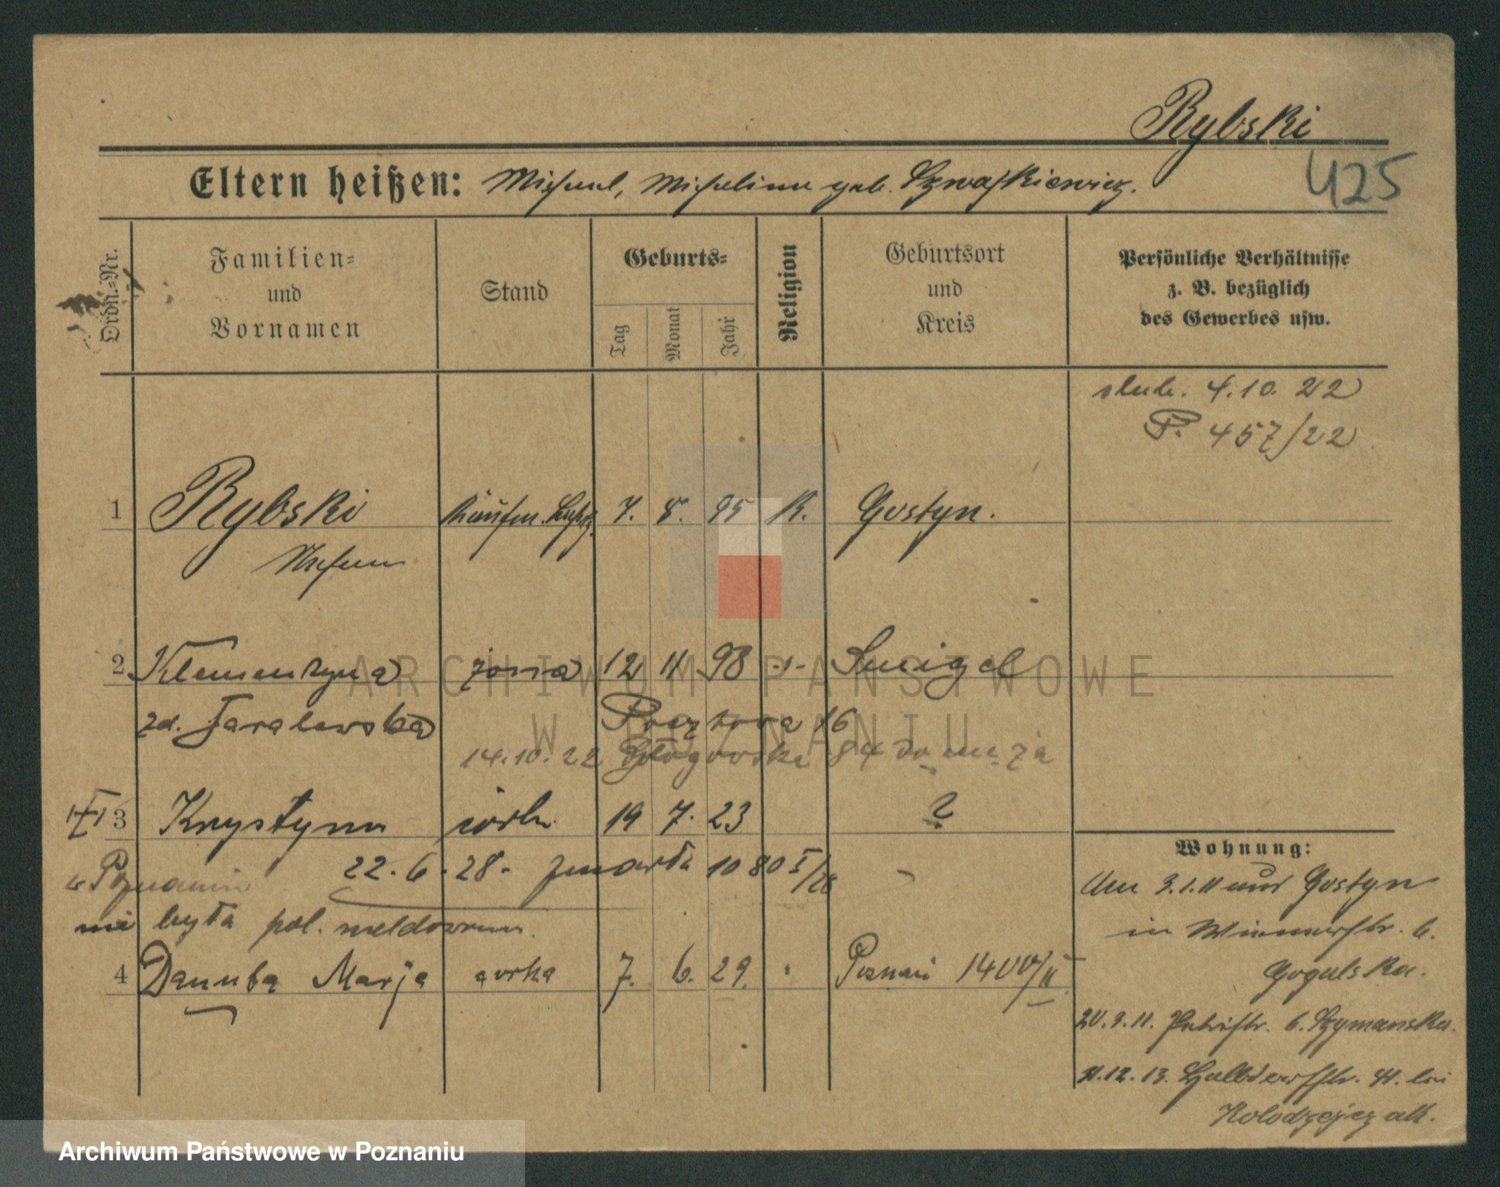 Rybski
425
Eltern heißen: Michael, Michalina geb. Szwajkiewicz.
Ordn.-Nr.
Familien- und Vornamen
Stand
Geburts-
Tag
Monat
Jahr
Religion
Geburtsort und Kreis
Persönliche Verhältnisse z. B. bezüglich des Gewerbes usw.
ślub. 4.10.22
P. 457/22
1 Rybski 7. 8. 95 K. Gostyn.
Stefan
2 Klementyna żona 12 11 98 -"- Smigel
zd. Jaralewska Pocztowa 16
14.10.22 Głogowska 84 do męża
3 Krystyna córka 19 7. 23 ?
22.6.28. zmarła 1080 I/28
w Poznaniu
nie była pol. meldowana.
4 Danuta Marja córka 7. 6. 29. Poznań 1400/II
Wohnung:
Am 3.1.11 aus Gostyn
in Wienerstr. 6.
Gogulska.
20.3.11. Petristr. 6. Szymanska.
11.12.13. Halbdorfstr. 41. bei
Kolodzejczak.
ARCHIWUM PAŃSTWOWE
W POZNANIU
Archiwum Państwowe w Poznaniu